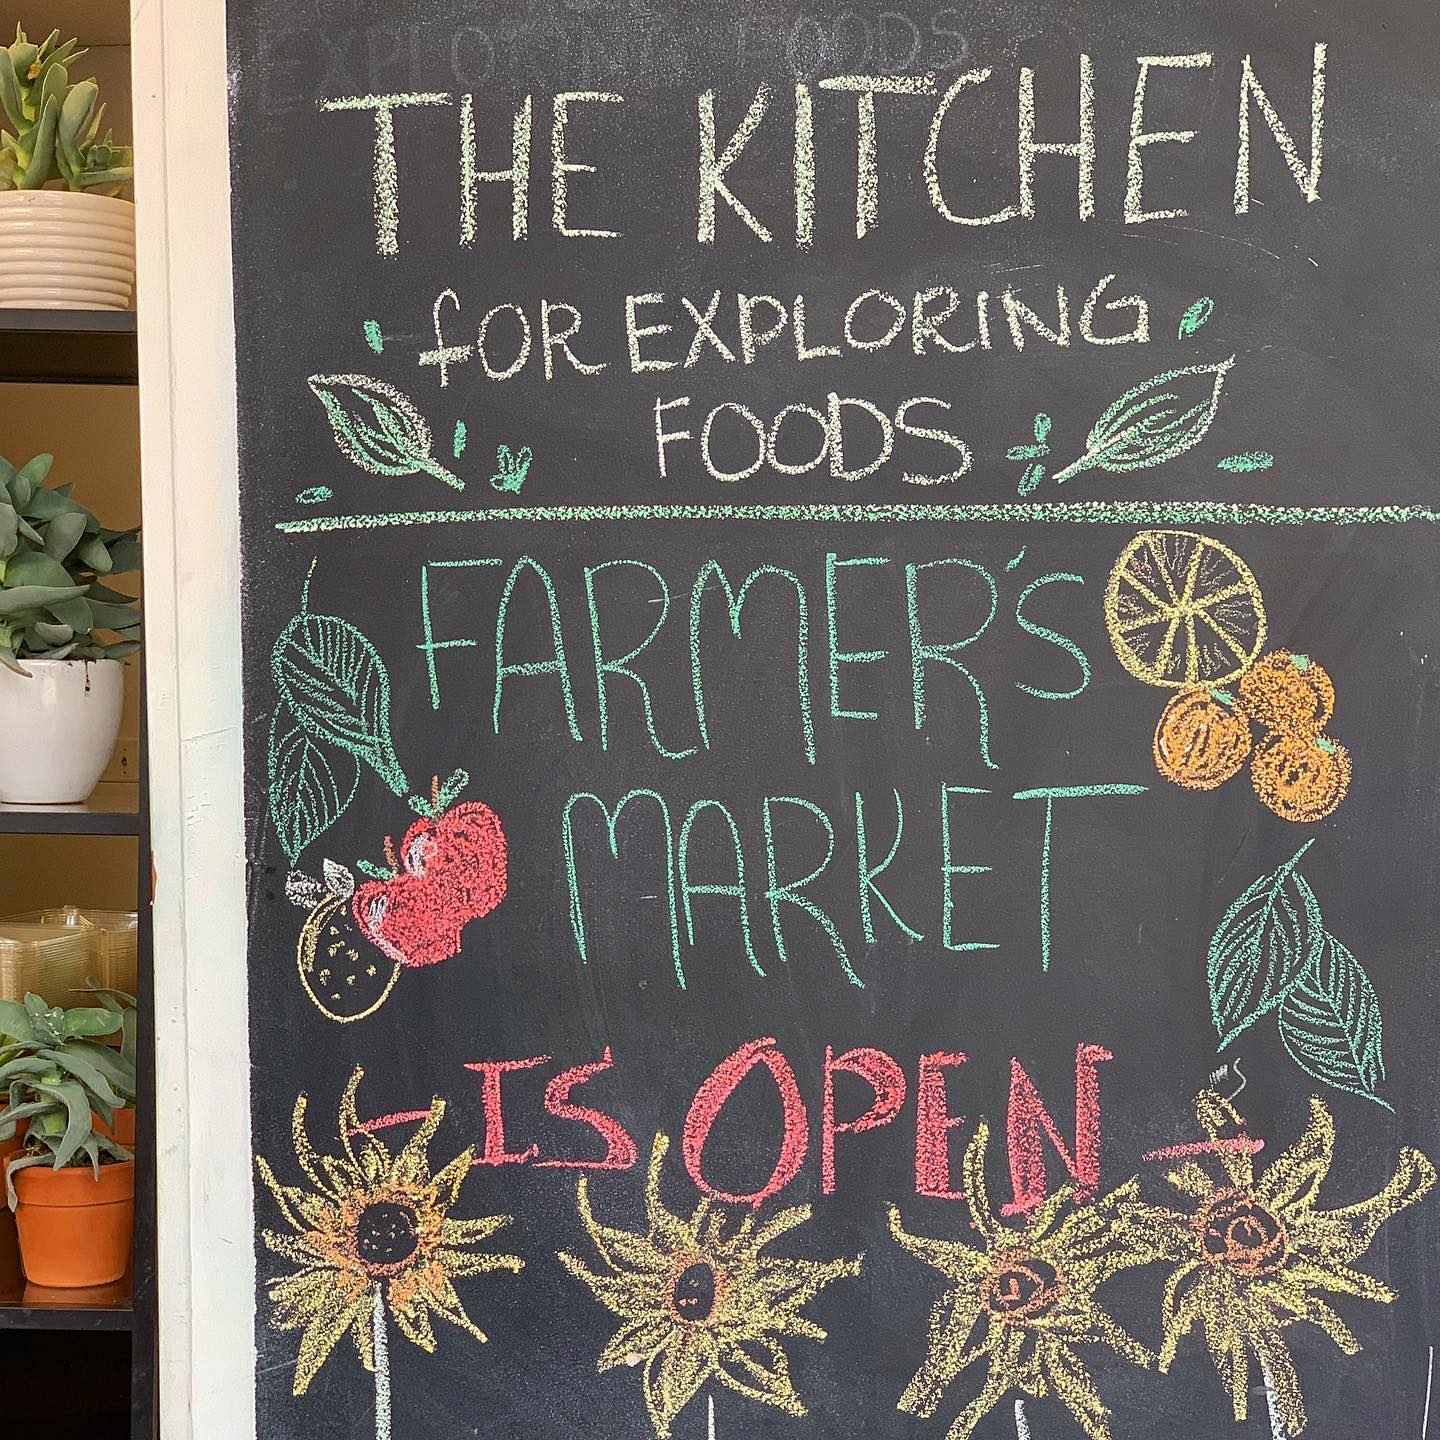 EXPLO FOODS
THE KITCHEN
fOR EXPLORING
FOODS
FARMER'S
MARKET
- IS OPEN -